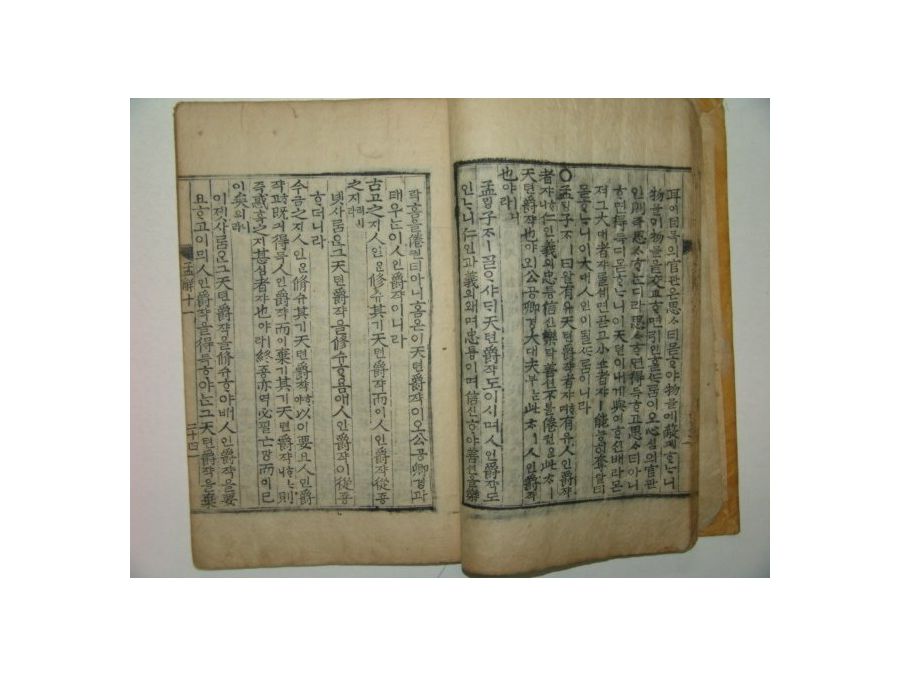 耳이目목의官관은思ᄉᆞ티몯ᄒᆞ야物믈에蔽폐ᄒᆞᄂᆞ니
物믈이物믈을交교ᄒᆞ면引인ᄒᆞᆯᄯᆞᄅᆞᆷ이오心심의官관
인則즉思ᄉᆞᄒᆞᄂᆞ디라思ᄉᆞᄒᆞ면得득ᄒᆞ고思ᄉᆞ티아니
ᄒᆞ면得득디몯ᄒᆞᄂᆞ니이天텬이내게與여ᄒᆞ신배라몬
져그大대者쟈ᄅᆞᆯ셰면그小쇼者쟈ㅣ能능히奪탈티
몯ᄒᆞᄂᆞ니이大대人인이될ᄯᆞᄅᆞᆷ이니라
○孟ᄆᆡᆼ子ᄌᆞㅣ曰왈有유天텬爵쟉者쟈ᄒᆞ며有유人인爵쟉
者쟈ᄒᆞ니仁인義의忠튱信신樂락善션不블倦권은此ᄎᆞㅣ
天텬爵쟉也야ㅣ오公공卿경大대夫부ᄂᆞᆫ此ᄎᆞㅣ人인爵쟉
也야ㅣ니라
孟ᄆᆡᆼ子ᄌᆞㅣᄀᆞᆯᄋᆞ샤ᄃᆡ天텬爵쟉도이시며人인爵쟉도
인ᄂᆞ니仁인과義의와忠튱이며信신ᄒᆞ야善션을樂
락홈을倦권티아니홈은이天텬爵쟉이오公공卿경과
태우ᄂᆞᆫ이人인爵쟉이니라
古고之지人인은修슈其기天텬爵쟉而이人인爵쟉從죵
之지러시라
녯사ᄅᆞᆷ은그天텬爵쟉을修슈홈애人인爵쟉이從죵
ᄒᆞ더니라
今금之지人인은修슈其기天텬爵쟉ᄒᆞ야以이要요人인爵
쟉ᄒᆞ고旣긔得득人인爵쟉而이棄기其기天텬爵쟉ᄒᆞᄂᆞ니則
즉惑혹之지甚심者쟈也야ㅣ라終죵亦역必필亡망而이已
이矣의니라
이젯사ᄅᆞᆷ은그天텬爵쟉을修슈ᄒᆞ야ᄡᅥ人인爵쟉을要
요ᄒᆞ고이믜人인爵쟉을得득ᄒᆞ야ᄂᆞᆫ그天텬爵쟉을棄
孟解十一
二十四